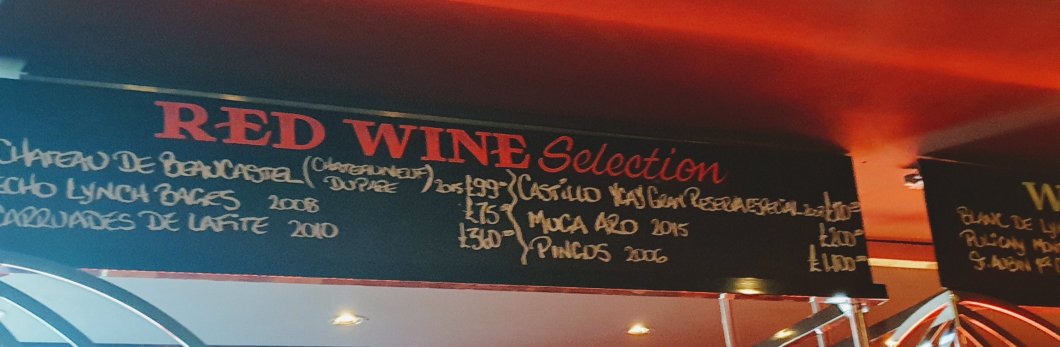 RED WINE Selection
CHATEAU DE BEAUCASTEL (CHATEAUNEUF DU PAPE) 2015 £99
ECHO LYNCH BAGES 2008 £75
CARRUADES DE LAFITE 2010 £360
CASTILLO YGAY GRAN RESERVA ESPECIAL
MUGA ARO 2015 £200
PINGUS 2006 £1,100
W
BLANC DE
PULIGNY
ST. AUBIN 1ER